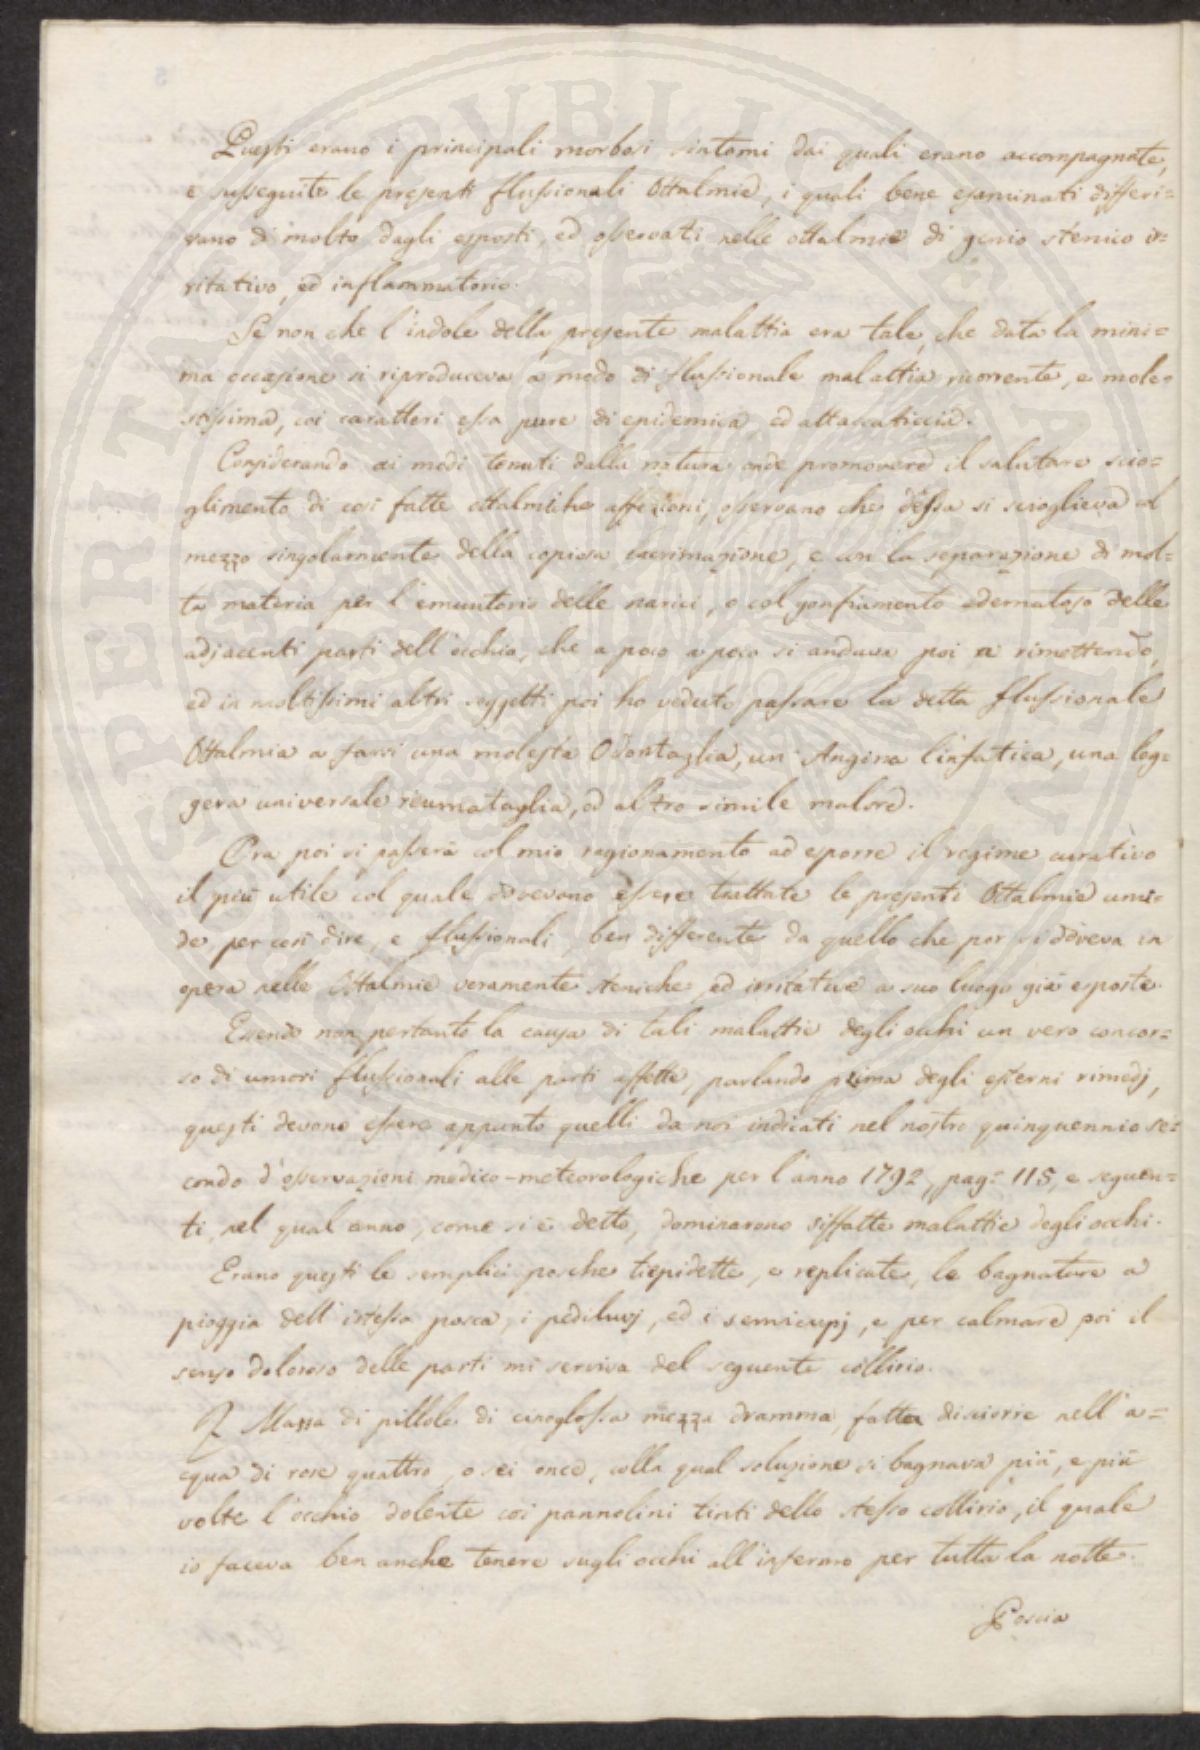 Questi erano i principali morbosi sintomi dai quali erano accompagnate,
e susseguite le presenti flussionali Ottalmie, i quali bene esaminati differi=
vano di molto dagli esposti, ed osservati nelle ottalmie di genio stenico ir=
ritativo, ed inflammatorio.
Se non che l'indole della presente malattia era tale, che data la mini=
ma occasione si riproduceva a modo di flussionale malattia ricorrente, e mole=
stissima, coi caratteri essa pure di epidemica, ed attaccaticcia.
Considerando ai modi tenuti dalla natura onde promovere il salutare scio=
glimento di così fatte ottalmiche affezioni, osservano che dessa si scioglieva col
mezzo singolarmente della copiosa lacrimazione, e con la separazione di mol=
ta materia per l'emuntorio delle narici, o col gonfiamento edematoso delle
adjacenti parti dell'occhio, che a poco a poco si andava poi a rimettendo,
ed in moltissimi altri soggetti poi ho veduto passare la detta flussionale
Ottalmia a farsi una molesta Odontaglia, un' Angina linfatica, una leg=
gera universale reumataglia, od altro simile malore.
Ora poi si passerà col mio ragionamento ad esporre il regime curativo
il più utile col quale dovevano essere trattate le presenti Ottalmie umi=
de, per così dire, e flussionali, ben differente da quello che por si doveva in
opera nelle Ottalmie veramente steniche, ed irritative a suo luogo già esposte.
Essendo non pertanto la causa di tali malattie degli occhi un vero concor=
so di umori flussionali alle parti affette, parlando prima degli esterni rimedj,
questi devono essere appunto quelli da noi indicati nel nostro quinquennio se=
condo d'osservazioni medico-meteorologiche per l'anno 1792, pag: 115, e seguen=
ti, nel qual anno, come si è detto, dominarono siffatte malattie degli occhi.
Erano questi le semplici posche tiepidette, e replicate, le bagnature a
pioggia dell'istessa posca, i pediluvj, ed i semicupj, e per calmare poi il
senso doloroso delle parti mi serviva del seguente collirio.
℞ Massa di pillole di cinoglossa mezza dramma, fatta disciorre nell'a=
cqua di rose quattro, o sei once, colla qual soluzione si bagnava più, e più
volte l'occhio dolente coi pannolini tinti dello stesso collirio, il quale
io faceva ben anche tenere sugli occhi all'infermo per tutta la notte.
Poscia